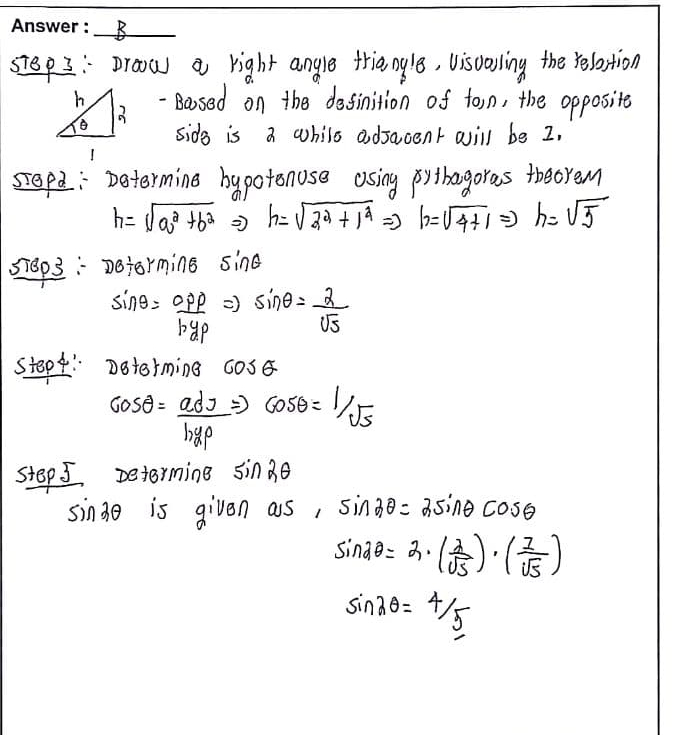 Answer : B
STEP 1 :- Draw a right angle triangle, Visualing the relation
h 2 θ 1
- Based on the definition of tan, the opposite
side is 2 while adjacent will be 1.
STEP 2 :- Determine hypotenuse using pythagoras theorem
h = √a² + b² ⇒ h = √2² + 1² ⇒ h = √4+1 ⇒ h = √5
STEP 3 :- Determine sinθ
sinθ = opp/hyp ⇒ sinθ = 2/√5
Step 4 :- Determine cosθ
cosθ = adj/hyp ⇒ cosθ = 1/√5
Step 5 Determine sin2θ
sin2θ is given as, sin2θ = 2sinθ cosθ
sin2θ = 2 · (2/√5) · (1/√5)
sin2θ = 4/5